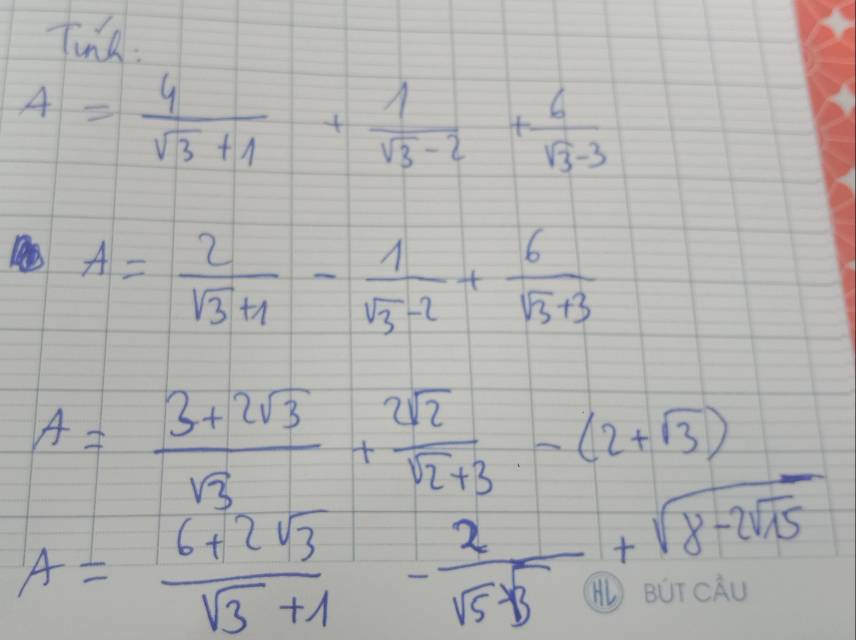 Tính:
A = 4/(√3 + 1) + 1/(√3 - 2) + 6/(√3 - 3)
A = 2/(√3 + 1) - 1/(√3 - 2) + 6/(√3 + 3)
A = (3 + 2√3)/√3 + 2√2/(√2 + 3) - (2 + √3)
A = (6 + 2√3)/(√3 + 1) - 2/(√5 - √3) + √(8 - 2√15)
HL BÚT CÂU